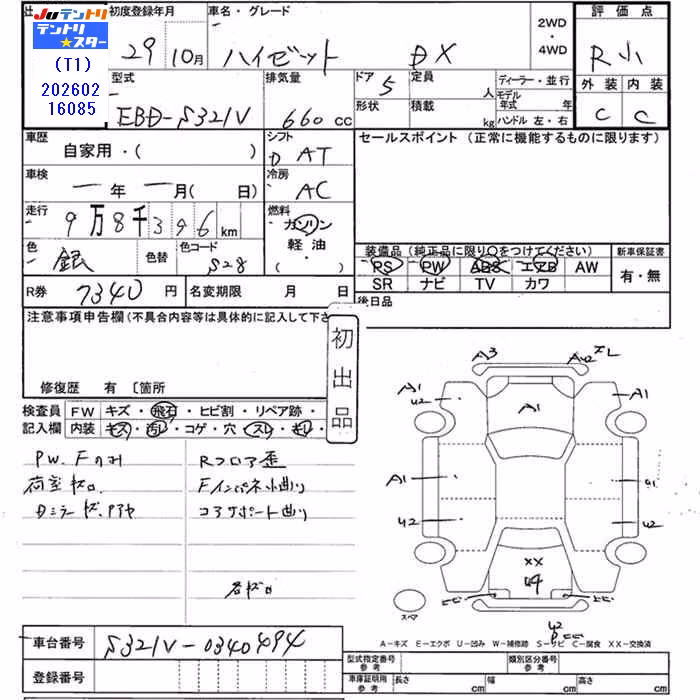 Juテントリ
テントリ★スター
(T1)
202602
16085
初度登録年月
29 10月
車名・グレード
ハイゼット DX
2WD
・
4WD
評価点
R小
外装 内装
C C
型式
EBD-S321V
排気量
660 cc
ドア 5
定員 人
形状
積載 kg
ディーラー・並行
モデル年式 年
ハンドル 左・右
車歴
自家用・( )
シフト
D AT
セールスポイント (正常に機能するものに限ります)
車検
年 月( 日)
冷房
AC
走行
9万8千396km
燃料
ガソリン
軽油
( )
色
銀
色替
色コード
S28
装備品(純正品に限り○をつけてください)
PS PW ABS エアB AW
SR ナビ TV カワ
新車保証書
有・無
R券 7340円
名変期限 月 日
後日品
注意事項申告欄(不具合内容等は具体的に記入して下さ
修復歴 有 〔箇所
初出品
検査員 FW キズ・飛石・ヒビ割・リペア跡・
記入欄 内装 キズ・汚レ・コゲ・穴・スレ・キレ・
PW.Fのみ
荷室キズ凹
Rフロア歪
Fインパネ小曲り
コアサポート曲り
各キズ凹
A3
A42
A1
A1
A1
42
A1
A1
42
42
XX
44
スペア
42
A-キズ E-エクボ U-凹み W-補修跡 S-サビ C-腐食 XX-交換済
車台番号 S321V-0340494
登録番号
型式指定番号
参考
類別区分番号
参考
車庫証明用
参考
長さ cm
幅 cm
高さ cm